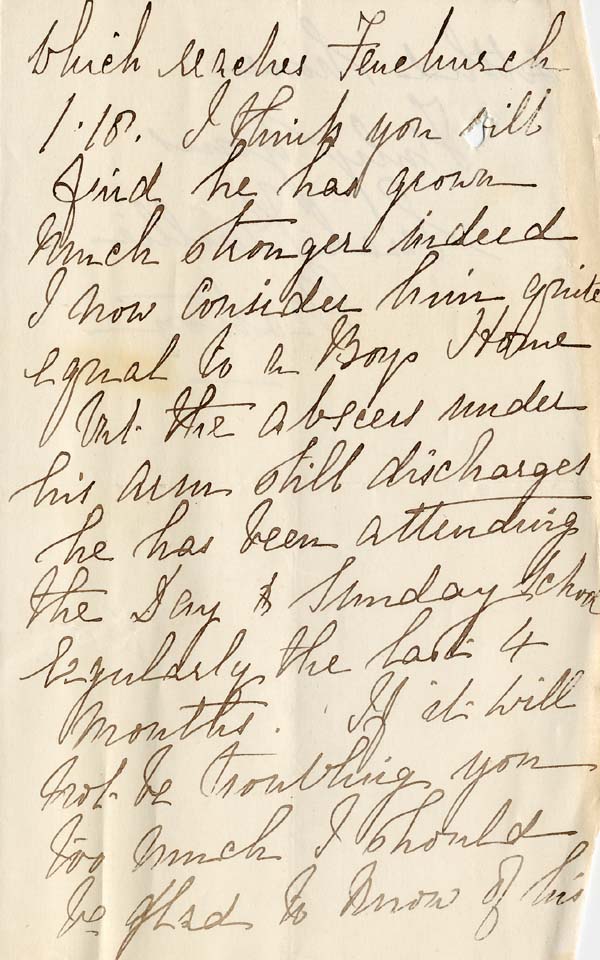 which reaches Fenchurch
1.18. I think you will
find he has grown
much stronger indeed
I now Consider him quite
equal to a Boys Home
but the abscess under
his arm still discharges
he has been attending
the Day & Sunday School
regularly the last 4
months. If it will
not be troubling you
too much I should
be glad to know of his